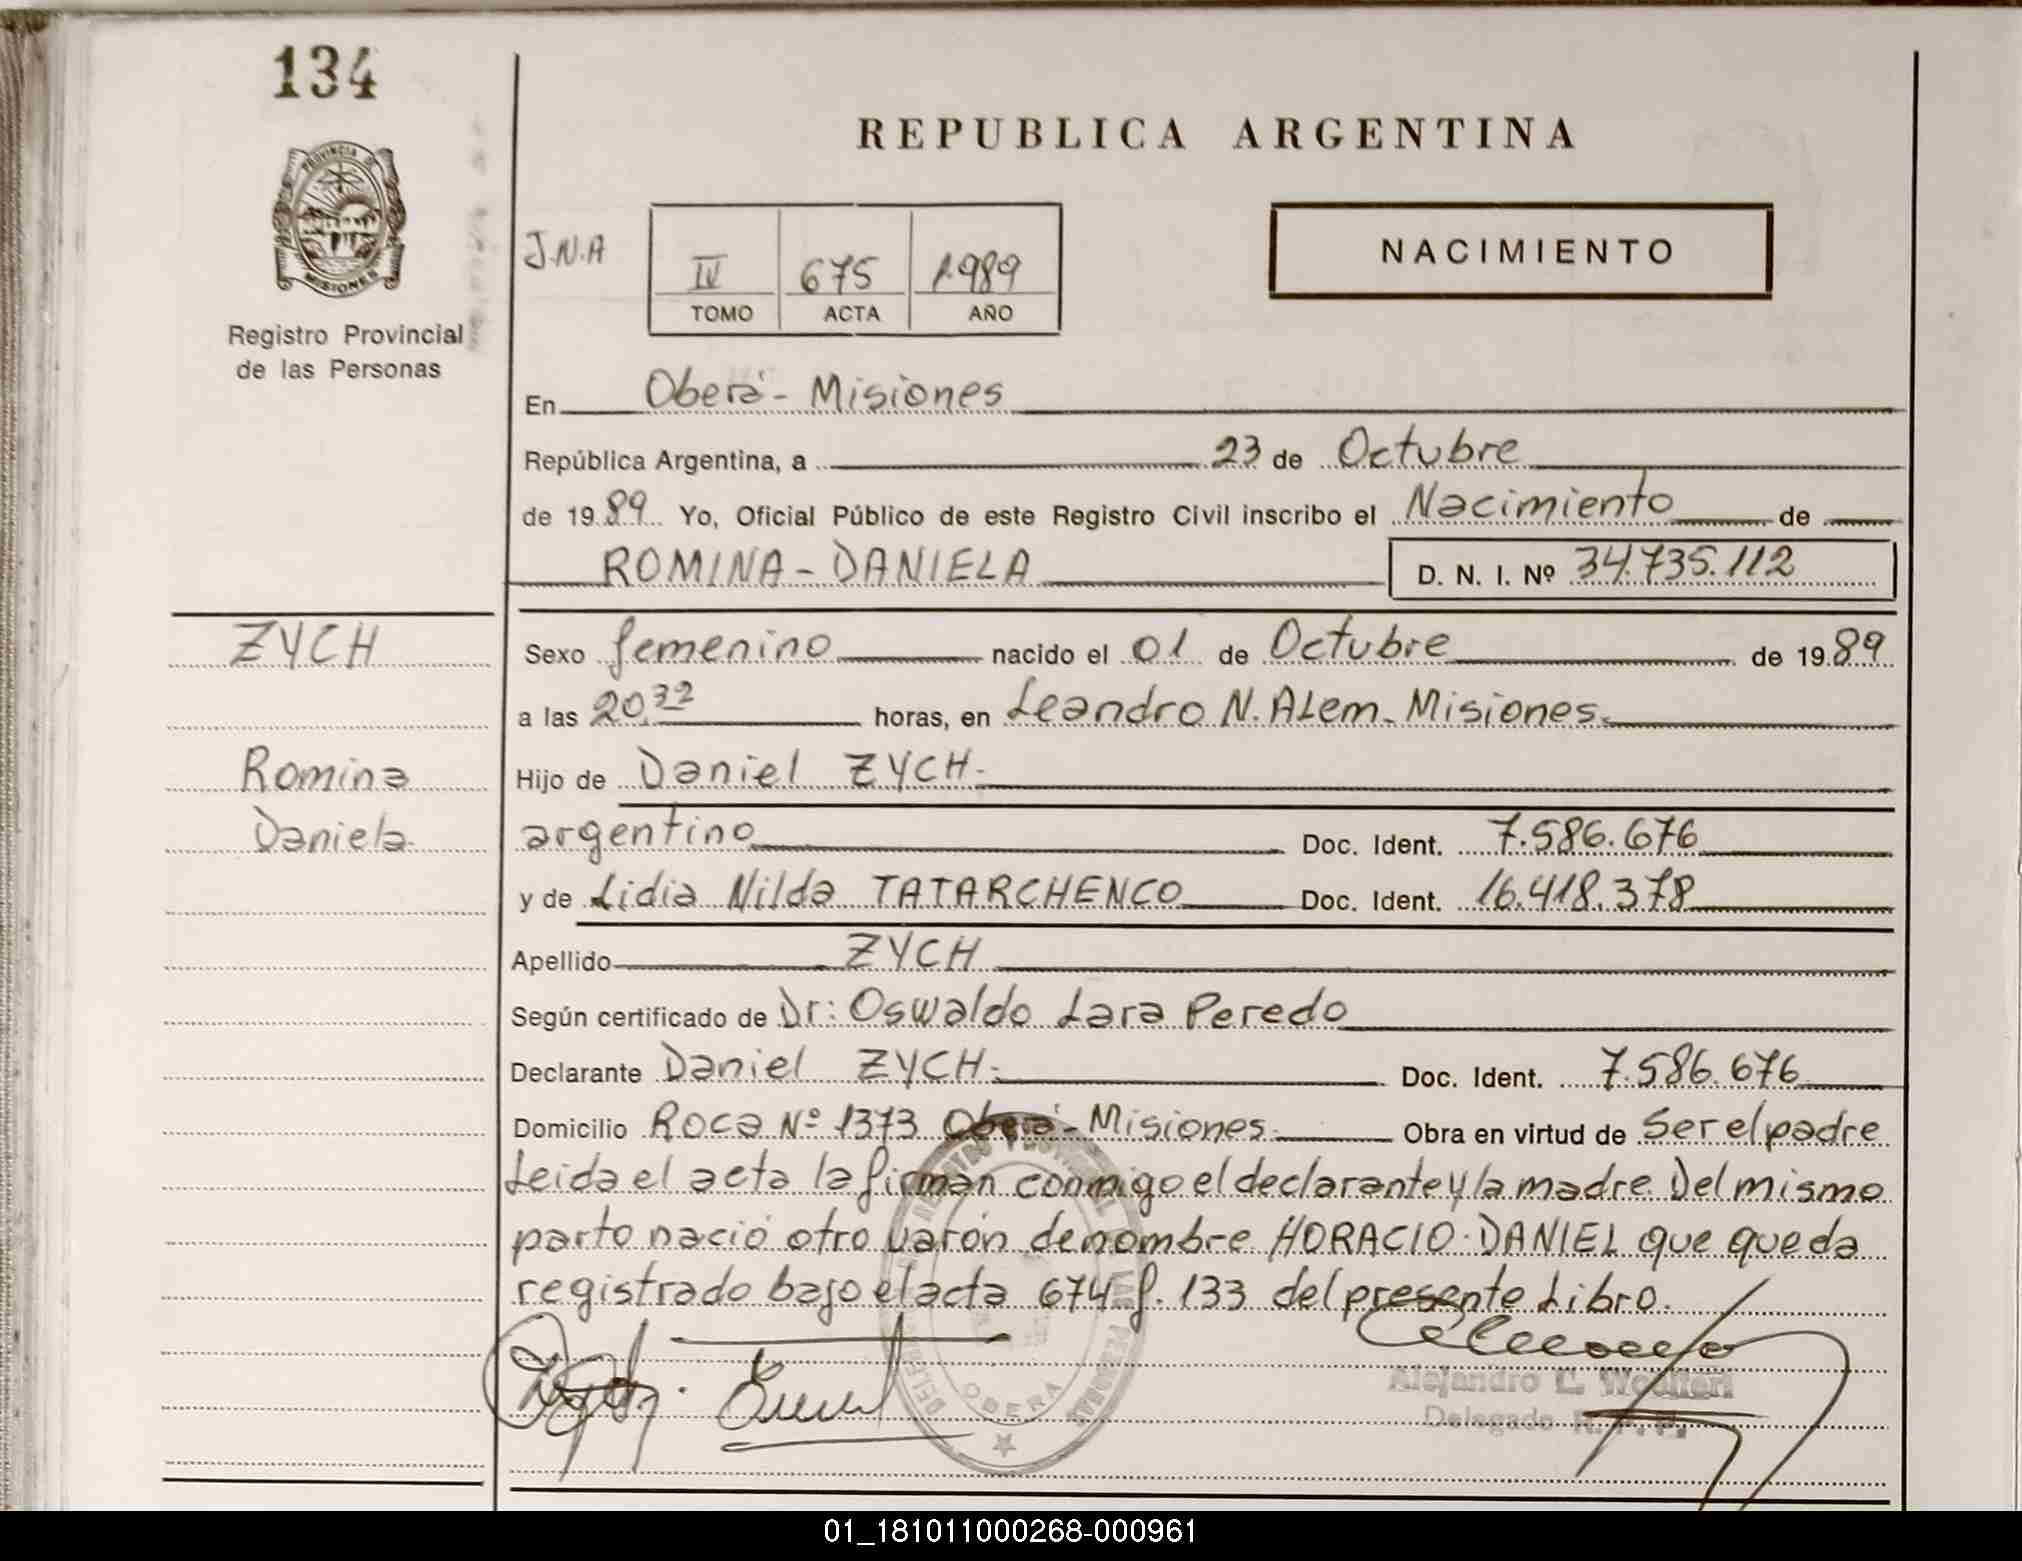 134
REPUBLICA ARGENTINA
PROVINCIA DE
MISIONES
Registro Provincial
de las Personas
J.N.A
IV 675 1.989
TOMO ACTA AÑO
NACIMIENTO
En Oberá - Misiones
República Argentina, a 23 de Octubre
de 1989 Yo, Oficial Público de este Registro Civil inscribo el Nacimiento de
ROMINA - DANIELA D. N. I. Nº 34.735.112
ZYCH
Romina
Daniela
Sexo femenino nacido el 01 de Octubre de 1989
a las 20.32 horas, en Leandro N. ALem - Misiones.
Hijo de Daniel ZYCH.
argentino Doc. Ident. 7.586.676
y de Lidia Nilda TATARCHENCO Doc. Ident. 16.418.378
Apellido ZYCH
Según certificado de Dr: Oswaldo Lara Peredo
Declarante Daniel ZYCH. Doc. Ident. 7.586.676
Domicilio Roca Nº 1373 Oberá - Misiones. Obra en virtud de Ser el padre
Leida el acta la firman conmigo el declarante y la madre. Del mismo
parto nació otro varón de nombre HORACIO - DANIEL que queda
registrado bajo el acta 674 f. 133 del presente Libro.
OBERA
Alejandro
Delegado R. P. P.
01_181011000268-000961